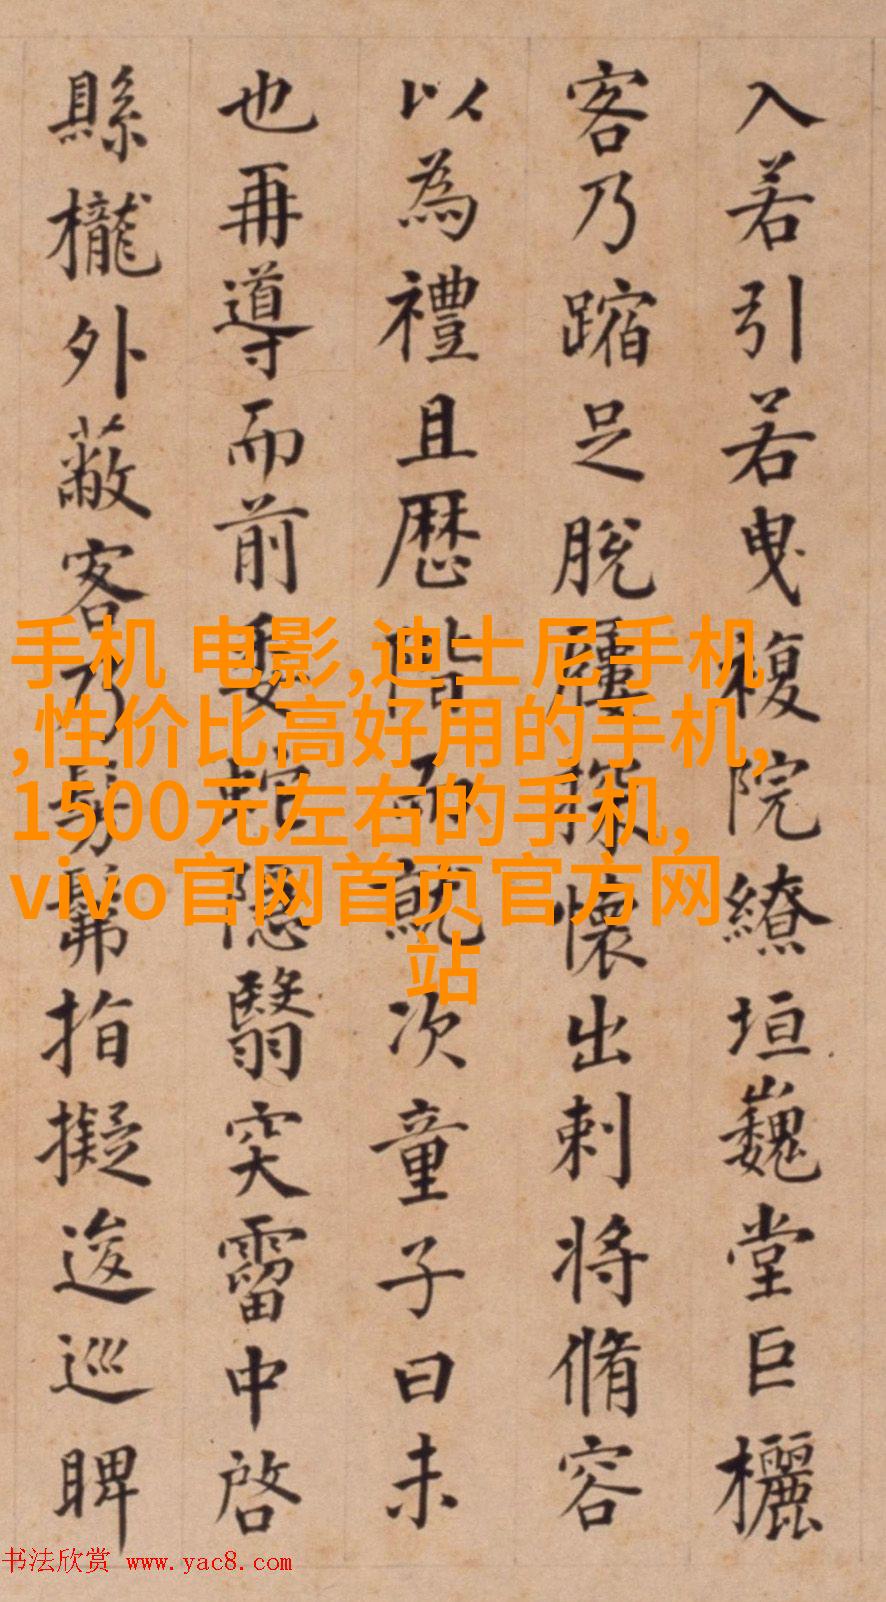 入若引若曳複院繚垣巍堂巨欐
客乃蹜足脫屨探懷出刺将脩容
以為禮且歷階而就次童子曰未
也再導而前委蛇隱翳突霤中啓
縣櫳外蔽客乃髣髴指擬逡巡睥
手机 电影,迪士尼手机
,性价比高好用的手机,
1500元左右的手机,
vivo官网首页官方网
站
书法欣赏 www.yac8.com